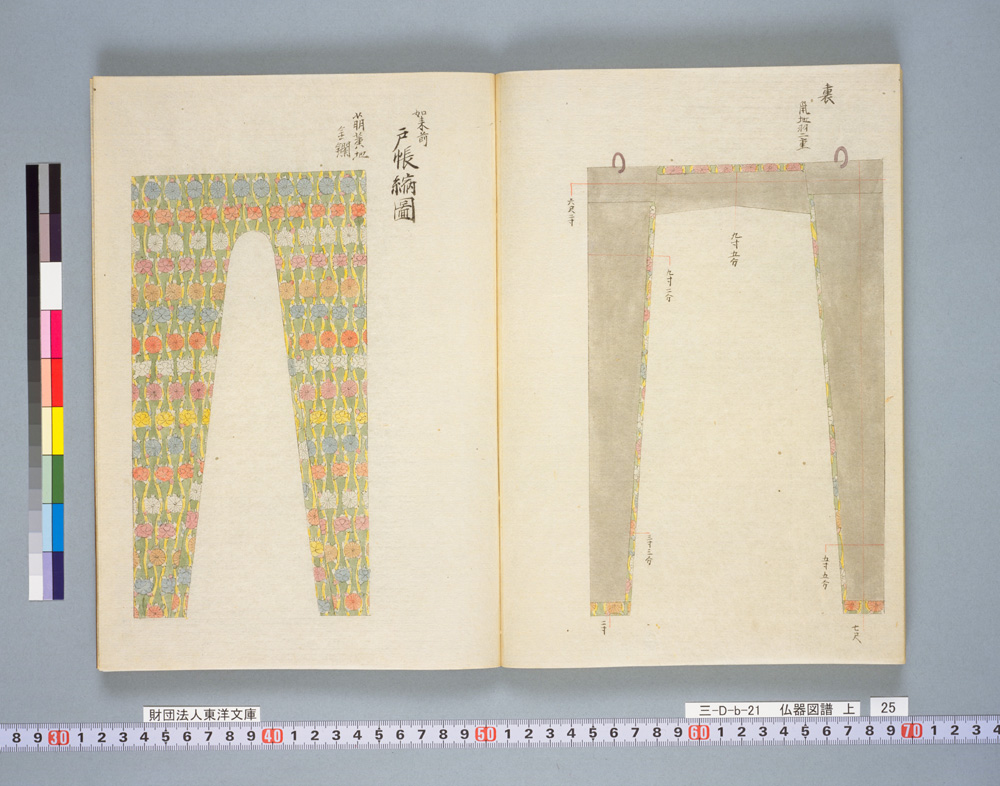 裏
鼠地羽二重
六尺二寸
九寸五分
九寸二分
三寸三分
五寸五分
二寸
七尺
如来前
戸帳縮圖
萌黄地
金襴
財団法人東洋文庫
三-D-b-21 仏器図譜 上
25
8 9 30 1 2 3 4 5 6 7 8 9 40 1 2 3 4 5 6 7 8 9 50 1 2 3 4 5 6 7 8 9 60 1 2 3 4 5 6 7 8 9 70 1 2 3 4